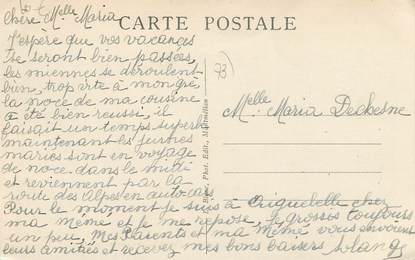 Chère Melle Maria
CARTE POSTALE
J'espère que vos vacances
se seront bien passées,
les miennes se déroulent
bien, trop vite à mon gré,
la noce de ma cousine
a été bien reussi, il
faisait un temps superbe
maintenant les jeunes
mariés sont en voyage
de noce dans le midi
et reviennent par la
route des Alpes en auto-cars
Pour le moment je suis à Aiguebelle chez
ma mémé et je me repose, je grossis toujours
un peu, Mes Parents et ma mémé vous envoient
leurs amitiés et recevez mes bons baisers
73
Melle Maria Deckesne
Phot. Edit.,